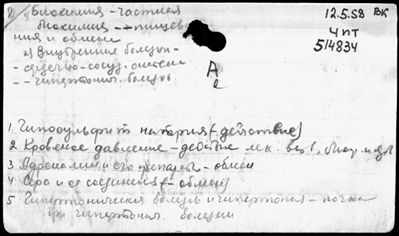 1) Биохимия - частная
биохимия → пищев
ния и обмена
2) Внутренние болезни -
- сердечно-сосуд. системы
- гипертония. болезнь
12.5.58 ВК
Ч пт
5/4834
А
1 Гипосульфит натрия (- действие)
2 Кровяное давление - действие лек. вещ.,
3 Адреналин и его препараты - обмен
4 Сера и ее соединения (- обмен)
5 Гипертоническая болезнь и гипертония - почки
при гипертонич. болезни